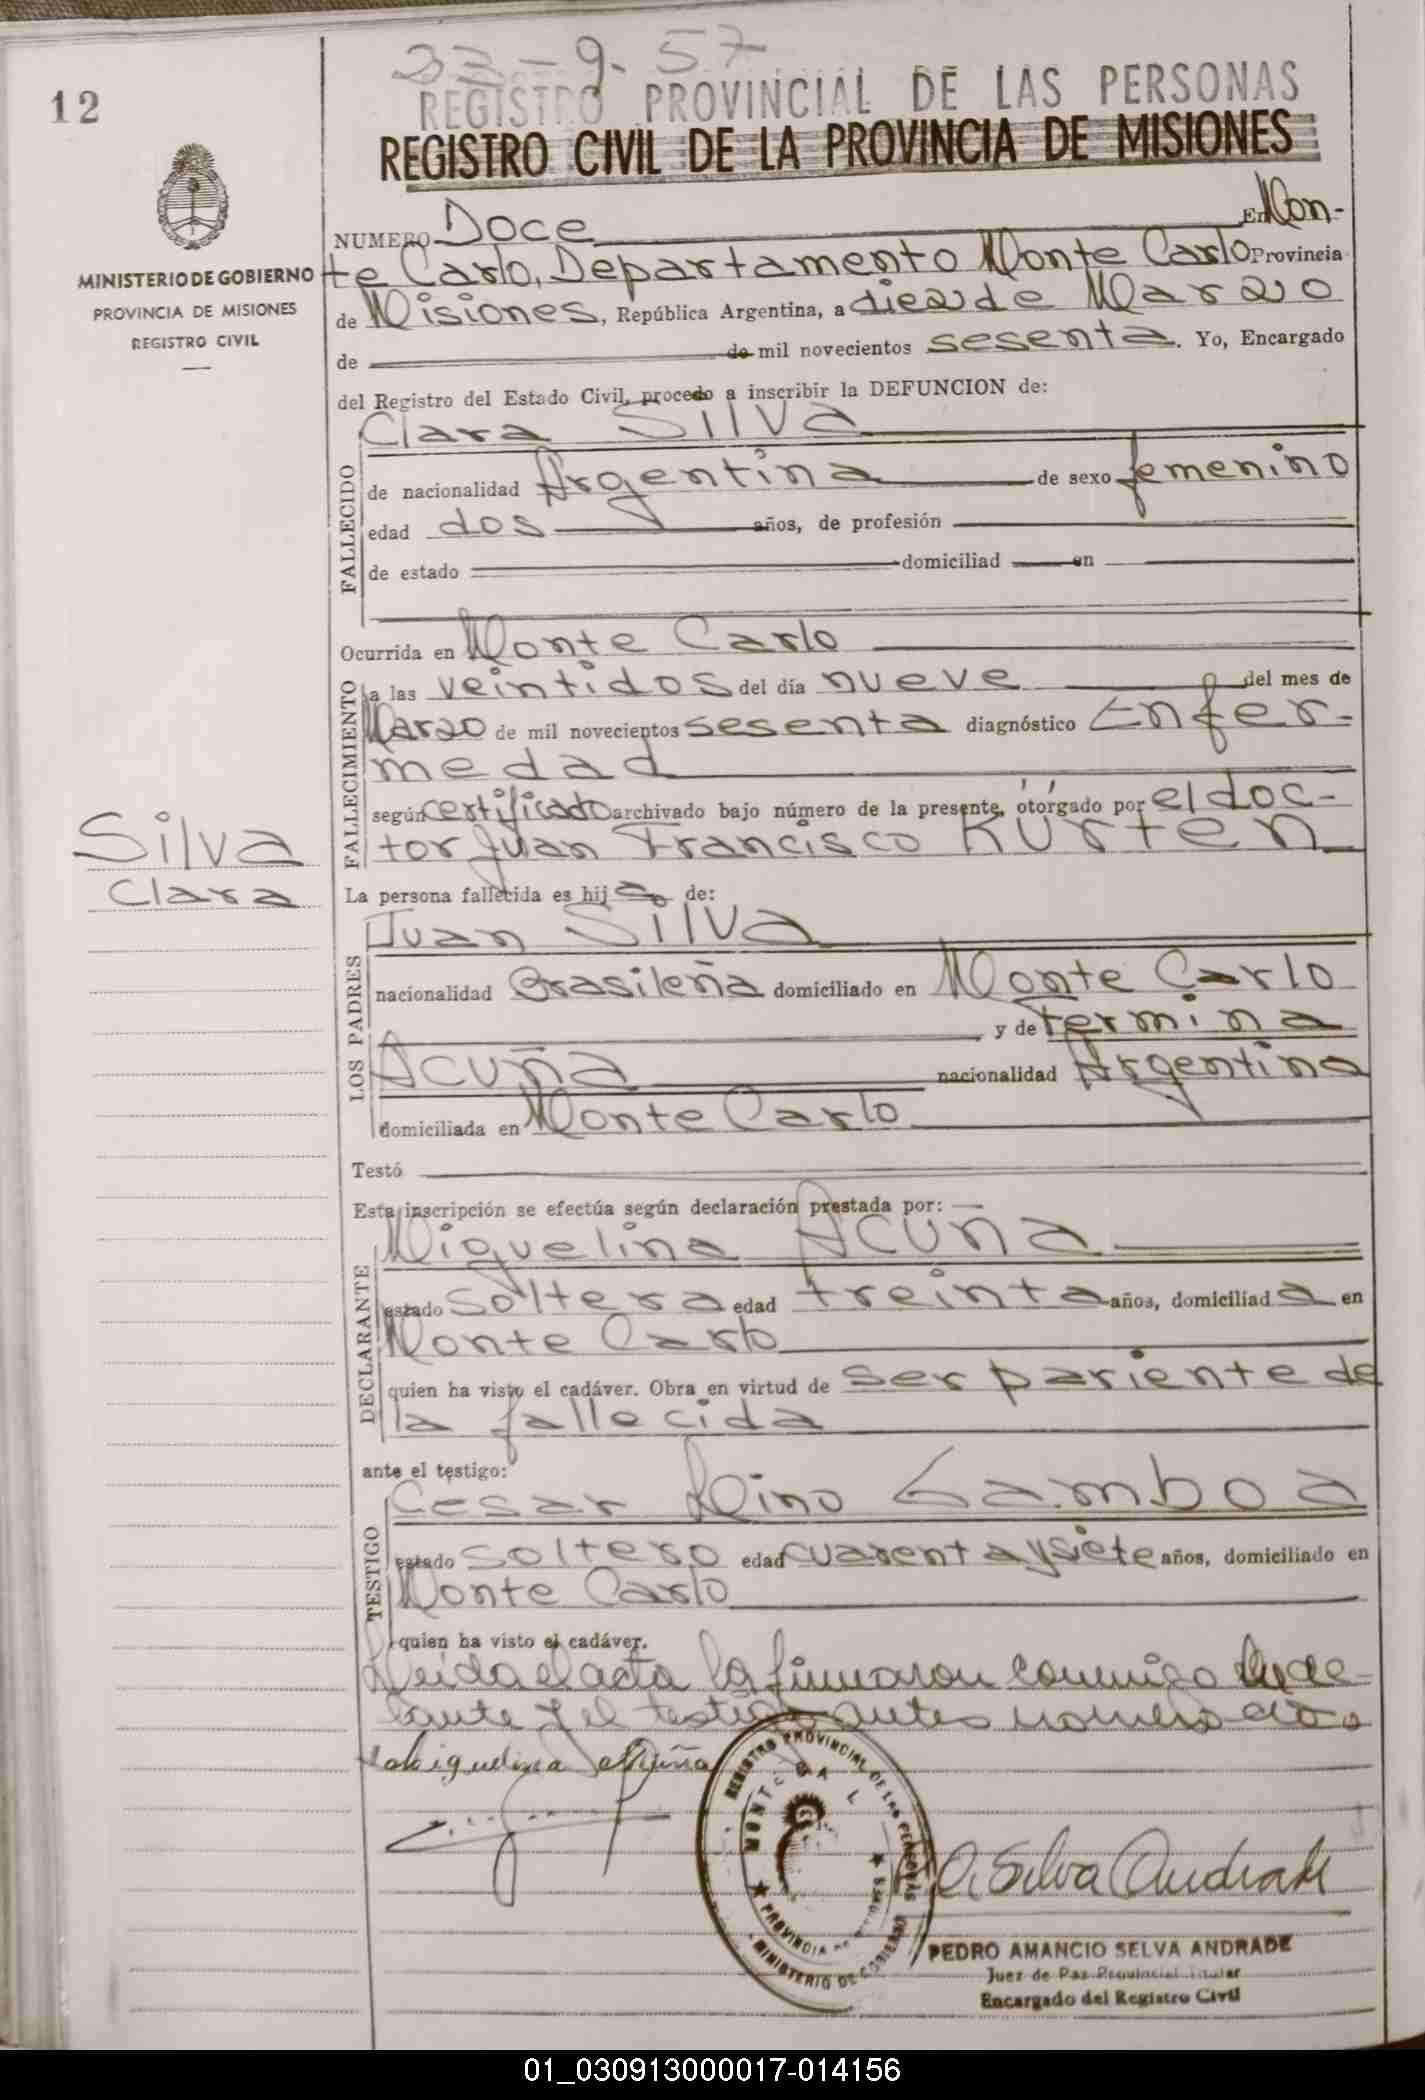 22-9-57
12
REGISTRO PROVINCIAL DE LAS PERSONAS
REGISTRO CIVIL DE LA PROVINCIA DE MISIONES
MINISTERIO DE GOBIERNO
PROVINCIA DE MISIONES
REGISTRO CIVIL
NUMERO Doce En Mon-
te Carlo, Departamento Monte Carlo Provincia
de Misiones, República Argentina, a diez de Marzo
de de mil novecientos sesenta. Yo, Encargado
del Registro del Estado Civil, procedo a inscribir la DEFUNCION de:
FALLECIDO
Clara Silva
de nacionalidad Argentina de sexo femenino
edad dos años, de profesión
de estado domiciliad en
FALLECIMIENTO
Ocurrida en Monte Carlo
a las veintidos del día nueve del mes de
Marzo de mil novecientos sesenta diagnóstico Enfer-
medad
según certificado archivado bajo número de la presente, otorgado por el doc-
tor Juan Francisco Kürten
Silva
Clara
La persona fallecida es hija de:
LOS PADRES
Juan Silva
nacionalidad Brasileña domiciliado en Monte Carlo
y de Fermina
Acuña nacionalidad Argentina
domiciliada en Monte Carlo
Testó
Esta inscripción se efectúa según declaración prestada por:
DECLARANTE
Miguelina Acuña
estado soltera edad treinta años, domiciliada en
Monte Carlo
quien ha visto el cadáver. Obra en virtud de ser pariente de
la fallecida
ante el testigo:
TESTIGO
Cesar Nino Gamboa
estado soltero edad cuarenta y siete años, domiciliado en
Monte Carlo
quien ha visto el cadáver.
Leida el acta la firmaron conmigo la de-
clarante y el testigo antes
Miguelina Acuña
REGISTRO PROVINCIAL DE LAS PERSONAS
MINISTERIO DE GOBIERNO
PROVINCIA DE MISIONES
P. A. Selva Andrade
PEDRO AMANCIO SELVA ANDRADE
Juez de Paz Provincial Titular
Encargado del Registro Civil
01_030913000017-014156